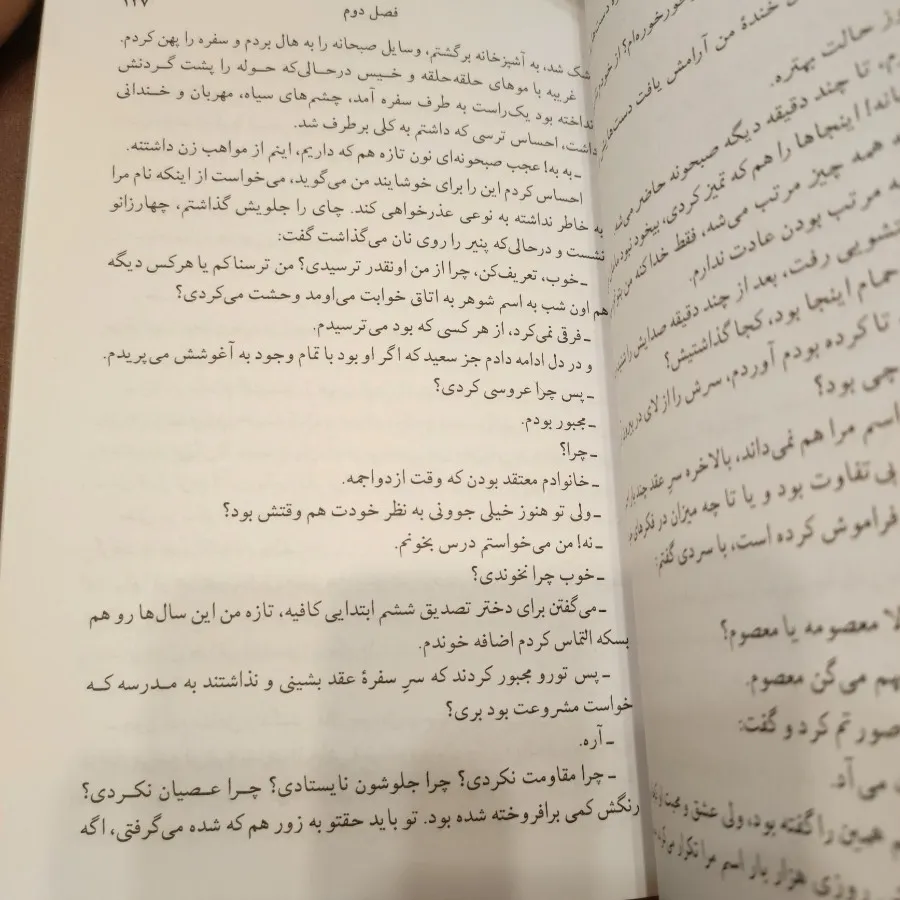 فصل دوم ۱۲۷
خشک شد، به آشپزخانه برگشتم، وسایل صبحانه را به هال بردم و سفره را پهن کردم.
غریبه با موهای حلقه‌حلقه و خیس درحالی‌که حوله را پشت گردنش
انداخته بود یک‌راست به طرف سفره آمد، چشم‌های سیاه، مهربان و خندانی
داشت، احساس ترسی که داشتم به کلی برطرف شد.
ـ به به! عجب صبحونه‌ای نون تازه هم که داریم، اینم از مواهب زن داشتنه.
احساس کردم این را برای خوشایند من می‌گوید، می‌خواست از اینکه نام مرا
به خاطر نداشته به نوعی عذرخواهی کند. چای را جلویش گذاشتم، چهارزانو
نشست و درحالی‌که پنیر را روی نان می‌گذاشت گفت:
ـ خوب، تعریف‌کن، چرا از من اونقدر ترسیدی؟ من ترسناکم یا هرکس دیگه
هم اون شب به اسم شوهر به اتاق خوابت می‌اومد وحشت می‌کردی؟
ـ فرقی نمی‌کرد، از هر کسی که بود می‌ترسیدم.
و در دل ادامه دادم جز سعید که اگر او بود با تمام وجود به آغوشش می‌پریدم.
ـ پس چرا عروسی کردی؟
ـ مجبور بودم.
ـ چرا؟
ـ خانوادم معتقد بودن که وقت ازدواجمه.
ـ ولی تو هنوز خیلی جوونی به نظر خودت هم وقتش بود؟
ـ نه! من می‌خواستم درس بخونم.
ـ خوب چرا نخوندی؟
ـ می‌گفتن برای دختر تصدیق ششم ابتدایی کافیه، تازه من این سال‌ها رو هم
بسکه التماس کردم اضافه خوندم.
ـ پس تورو مجبور کردند که سرِ سفرهٔ عقد بشینی و نذاشتند به مدرسه که
خواست مشروعت بود بری؟
ـ آره.
ـ چرا مقاومت نکردی؟ چرا جلوشون نایستادی؟ چرا عصیان نکردی؟
رنگش کمی برافروخته شده بود. تو باید حقتو به زور هم که شده می‌گرفتی، اگه
خندهٔ من آرامش یافت
حالت بهتره.
تا چند دقیقه دیگه صبحونه حاضر می‌شه
اینجاها را هم که تمیز کردی، بیخود نبود
همه چیز مرتب می‌شه، فقط خدا کنه من بتونم
مرتب بودن عادت ندارم.
رفت، بعد از چند دقیقه صدایش را شنیدم
حمام اینجا بود، کجا گذاشتیش؟
تا کرده بودم آوردم، سرش را از لای در بیرون
چی بود؟
اسم مرا هم نمی‌داند، بالاخره سرِ عقد چند بار
بی تفاوت بود و یا تا چه میزان در فکرهای
فراموش کرده است، با سردی گفتم:
معصومه یا معصوم؟
می‌گن معصوم.
کرد و گفت:
می‌آد.
همین را گفته بود، ولی عشق و محبت
روزی هزار بار اسم مرا تکرار می‌کرد